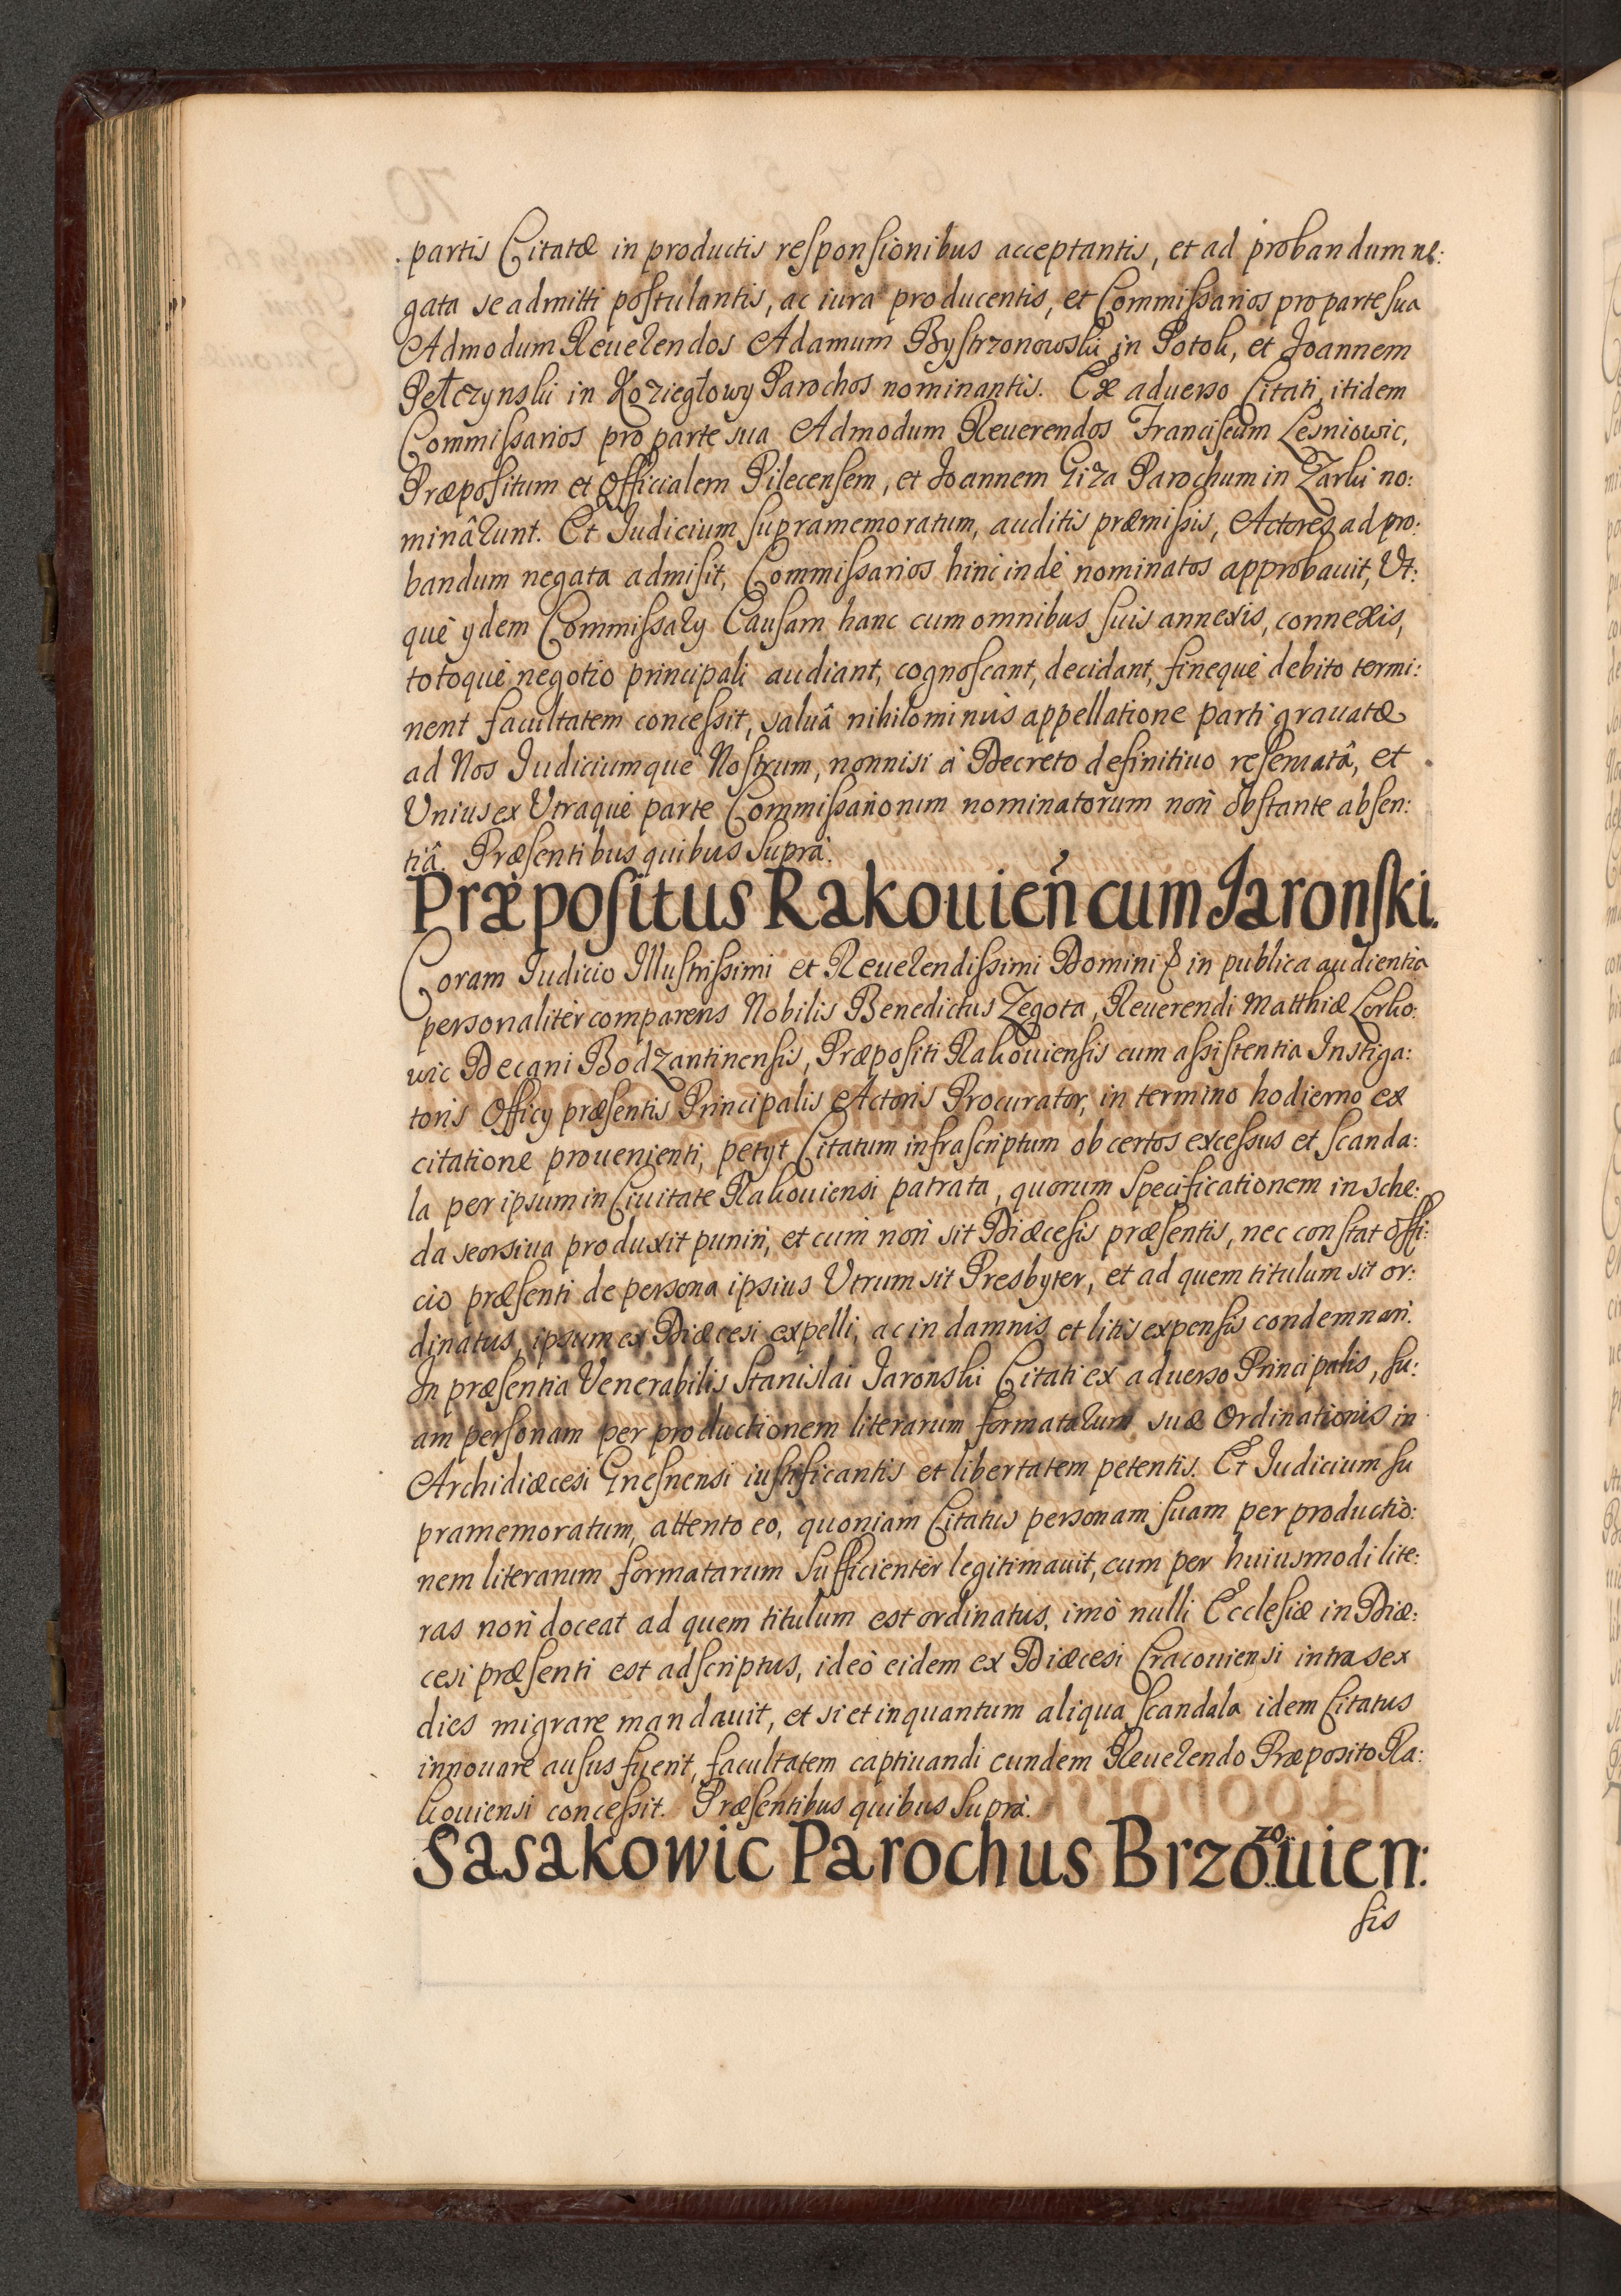 partis Citatæ in productis responsionibus acceptantis, et ad probandum ne:
gata se admitti postulantis, ac iura producentis, et Commissarios pro parte sua
Admodum Reuerendos Adamum Bystrzonowski in Potok, et Joannem
Pełczynski in Koziegłowy Parochos nominantis. Ex aduerso Citati itidem
Commissarios pro parte sua Admodum Reuerendos Franciscum Lesniowic,
Præpositum et Officialem Pilecensem, et Joannem Giza Parochum in Zarki no:
minârunt. Et Judicium supramemoratum, auditis præmissis, Actores ad pro:
bandum negata admisit, Commissarios hinc inde nominatos approbauit, Vt:
que ydem Commissary Causam hanc cum omnibus suis annexis, connexis,
totoque negotio principali audiant, cognoscant, decidant, fineque debito termi:
nent facultatem concessit, saluâ nihilominus appellatione parti grauatæ
ad Nos Judiciumque Nostrum, nonnisi à Decreto definitiuo reseruatâ, et
Vnius ex Vtraque parte Commissariorum nominatorum non obstante absen:
tiâ. Præsentibus quibus Suprà.
Præpositus Rakouien̄ cum Jaronski.
Coram Judicio Illustrissimi et Reuerendissimi Domini & in publica audientia
personaliter comparens Nobilis Benedictus Zegota, Reuerendi Matthiæ Lorko:
wic Decani Bodzantinensis, Præpositi Rakouiensis cum assistentia Instiga:
toris Officy præsentis Principalis Actoris Procurator, in termino hodierno ex
citatione prouenienti, petyt Citatum infrascriptum ob certos excessus et scanda:
la per ipsum in Ciuitate Rakouiensi patrata, quorum Specificationem in sche:
da seorsiua produxit puniri, et cum non sit Diæcesis præsentis, nec constat offi:
cio præsenti de persona ipsius Vtrum sit Presbyter, et ad quem titulum sit or:
dinatus, ipsum ex Diæcesi expelli, ac in damnis et litis expensis condemnari.
In præsentia Venerabilis Stanislai Jaronski Citati ex aduerso Principalis, su:
am personam per productionem literarum formatarum suæ Ordinationis in
Archidiæcesi Gnesnensi iustificantis et libertatem petentis. Et Judicium su
pramemoratum, attento eo, quoniam Citatus personam suam per productio:
nem literarum formatarum Sufficienter legitimauit, cum per huiusmodi lite:
ras non doceat ad quem titulum est ordinatus, imò nulli Ecclesiæ in Diæ:
cesi præsenti est adscriptus, ideò eidem ex Diæcesi Cracouiensi intra sex
dies migrare mandauit, et si et inquantum aliqua scandala idem Citatus
innouare ausus fuerit, facultatem captiuandi eundem Reuerendo Præposito Ra:
kouiensi concessit. Præsentibus quibus Suprà.
Sasakowic Parochus Brzozouien:
sis